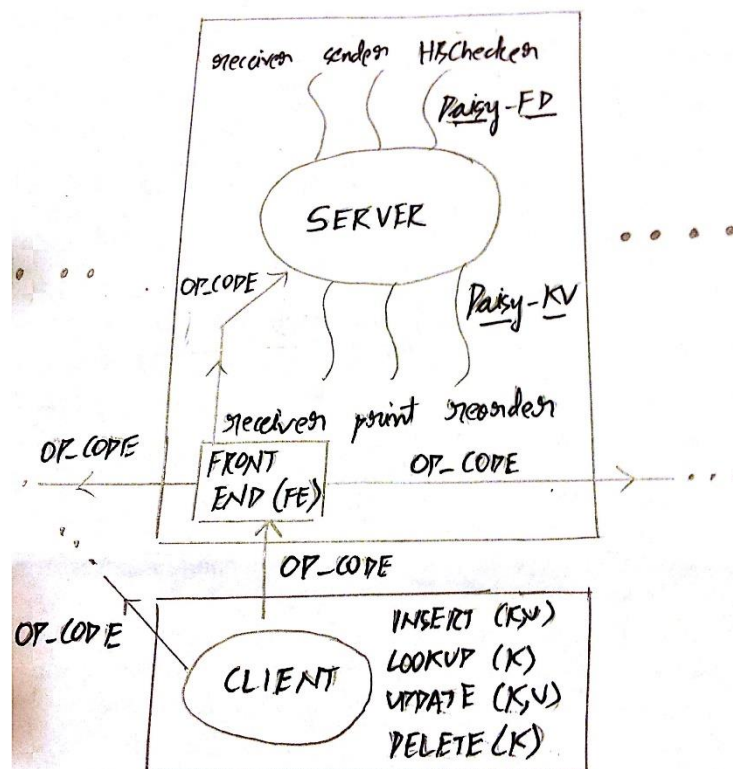 receiver sender HBChecker
Daisy-FD
SERVER
OP_CODE
Daisy-KV
receiver print reorder
OP_CODE
FRONT
END (FE)
OP_CODE
OP_CODE
OP_CODE
CLIENT
INSERT (K,V)
LOOKUP (K)
UPDATE (K,V)
DELETE (K)